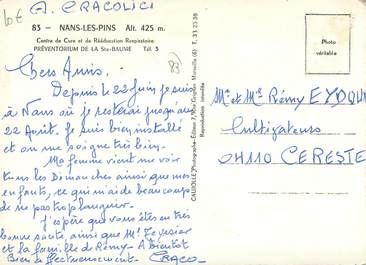 10€ A. CRACOLICI
83 - NANS-LES-PINS Alt. 425 m.
Centre de Cure et de Rééducation Respiratoire
PRÉVENTORIUM DE LA Ste-BAUME Tél. 3
83
Chers Amis.
Depuis le 22 juin je suis
à Nans où je resterai jusqu'au
22 Août. Je suis bien installé
et on me soigne très bien.
Ma femme vient me voir
tous les Dimanches ainsi que mes
enfants, ce qui m'aide beaucoup
de ne pas trop
J'espère que vous êtes en très
bonne santé, ainsi que Mr Teyssier
et la famille de Rémy - A Bientôt
Bien affectueusement - CRACO
Reproduction interdite
Photo
véritable
Mr et Me Rémy EYDOUX
Cultivateurs
04110 CERESTE